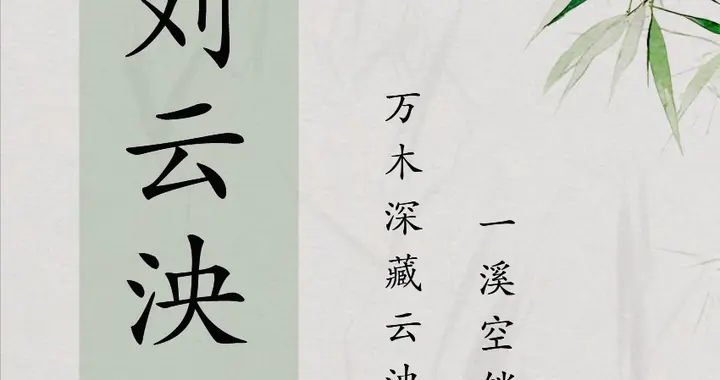 刘云泱
万木深藏云泱
一溪空